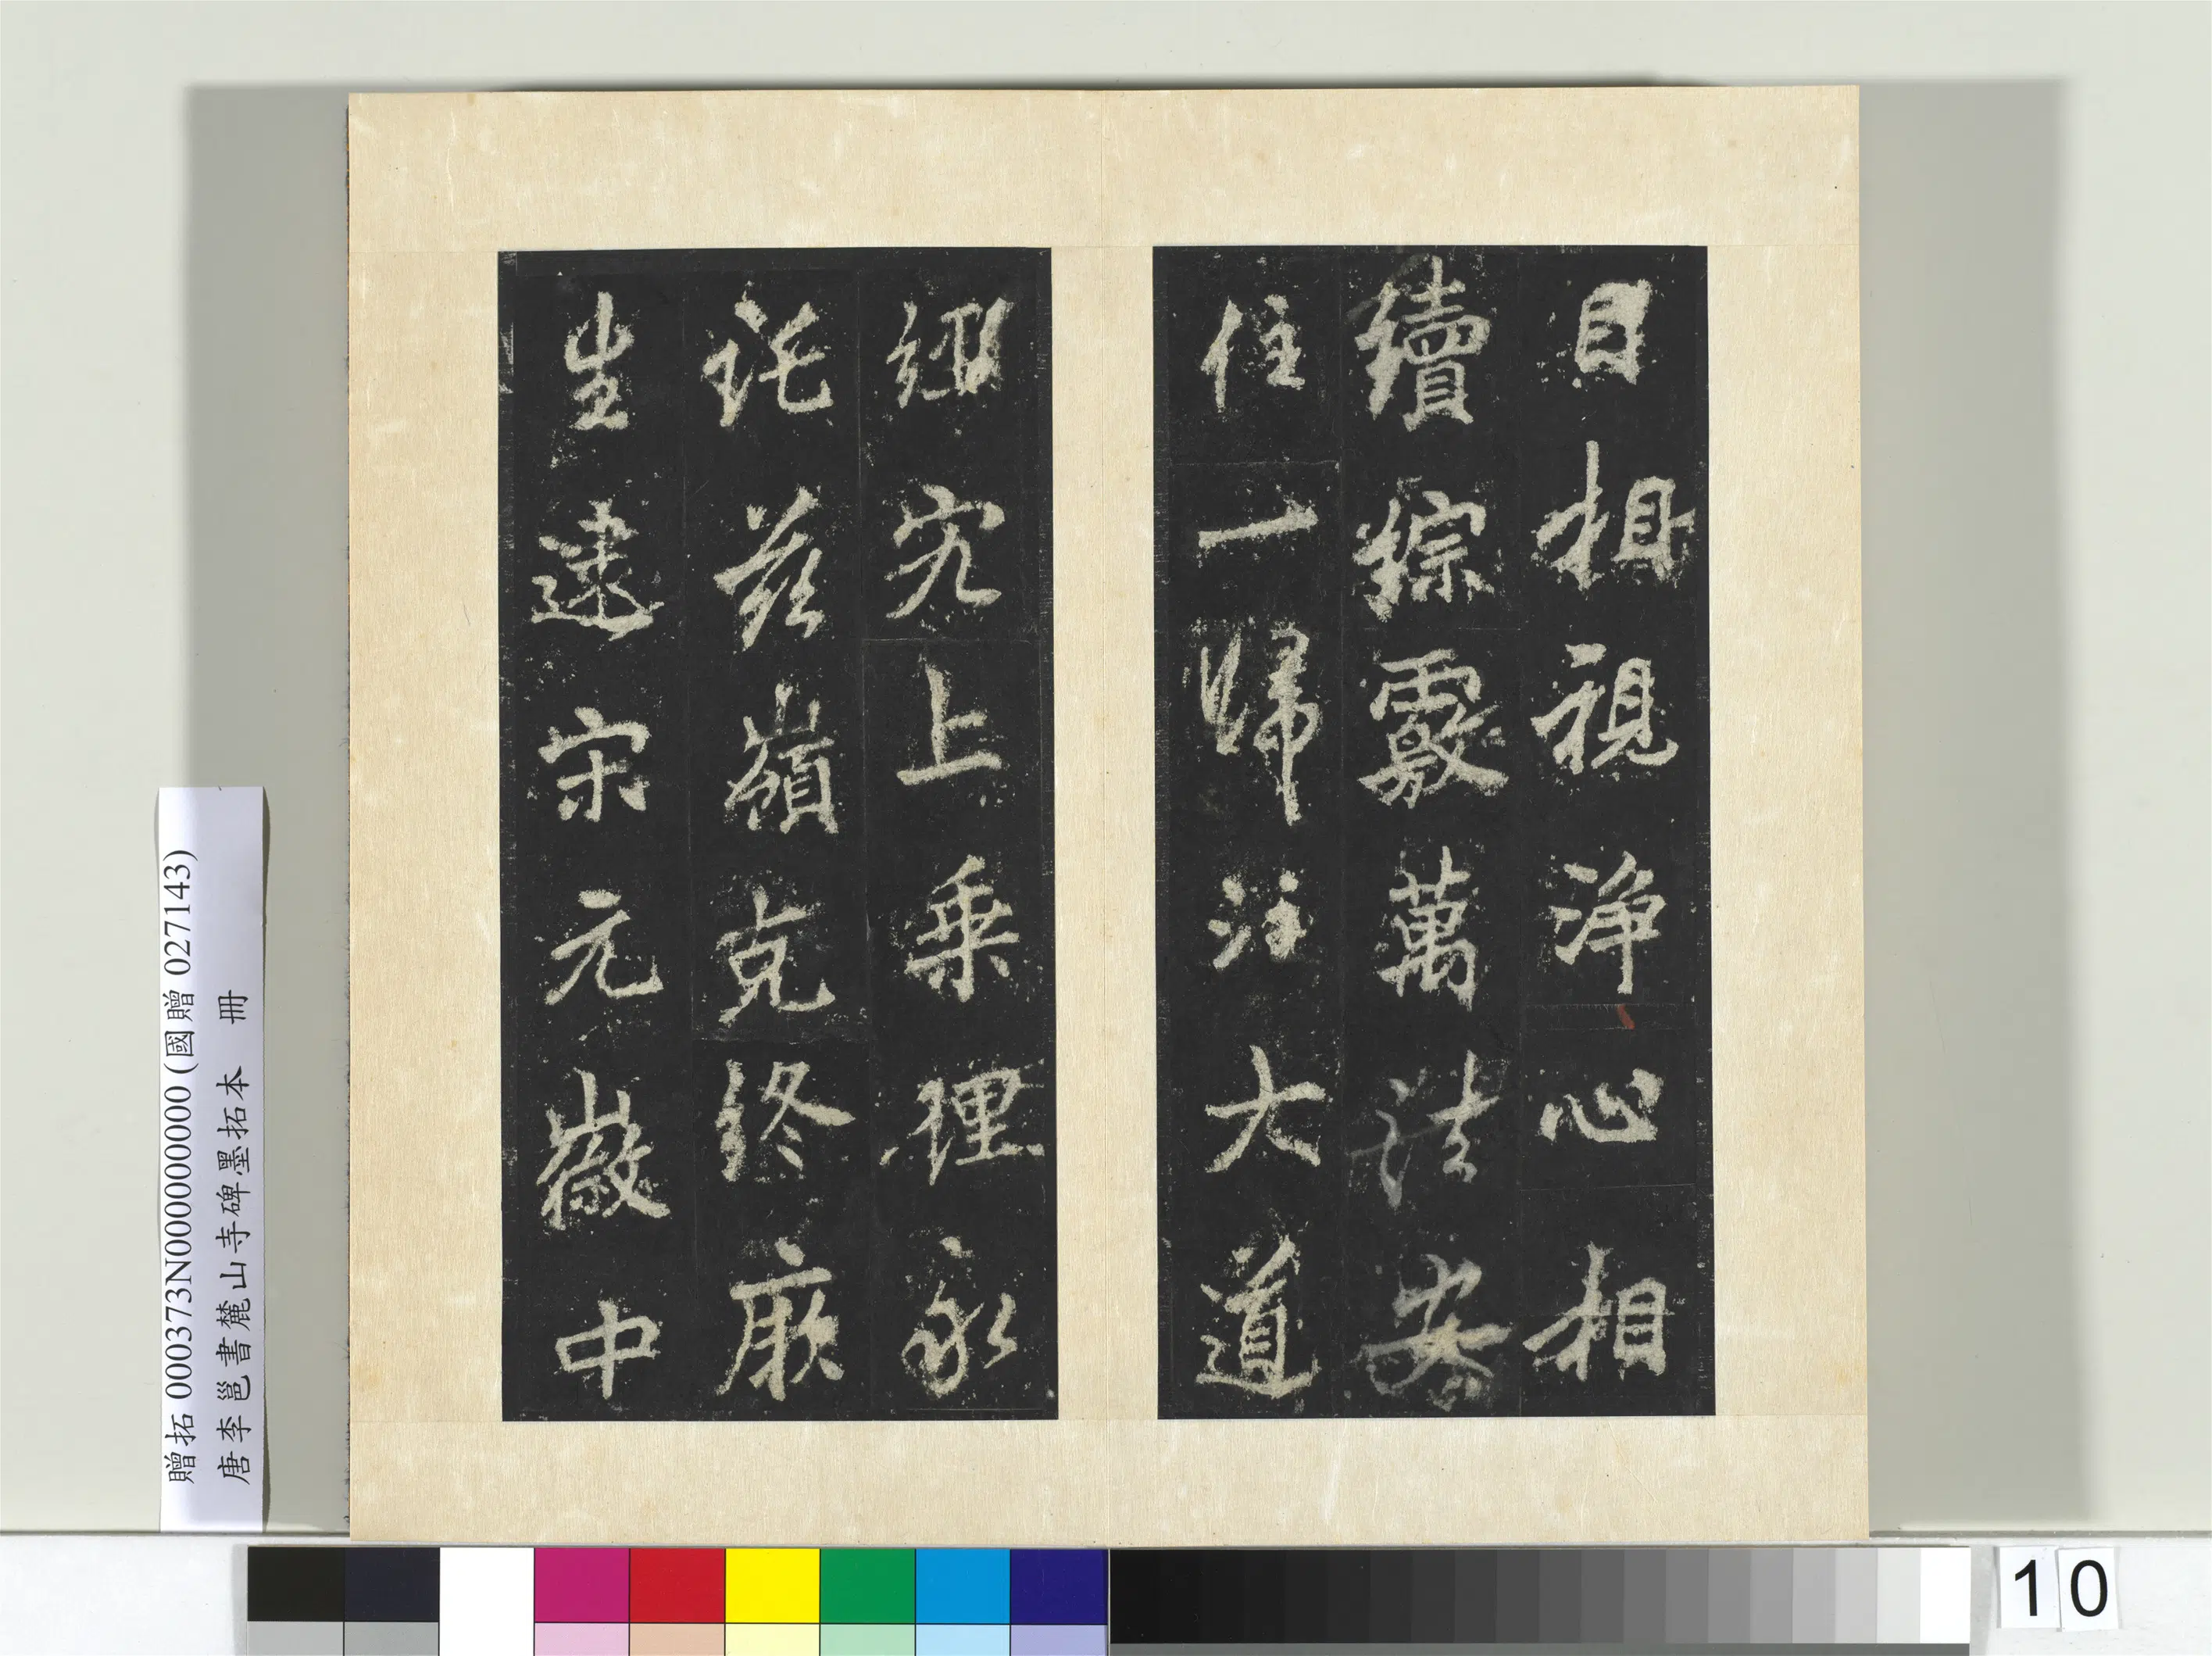 目相視淨心相
續綜覈萬法安
住一歸注大道
絕究上乗理永
託茲嶺克終厥
生逮宋元徽中
贈拓 000373N000000000 (國贈 027143)
唐李邕書麓山寺碑墨拓本 冊
10